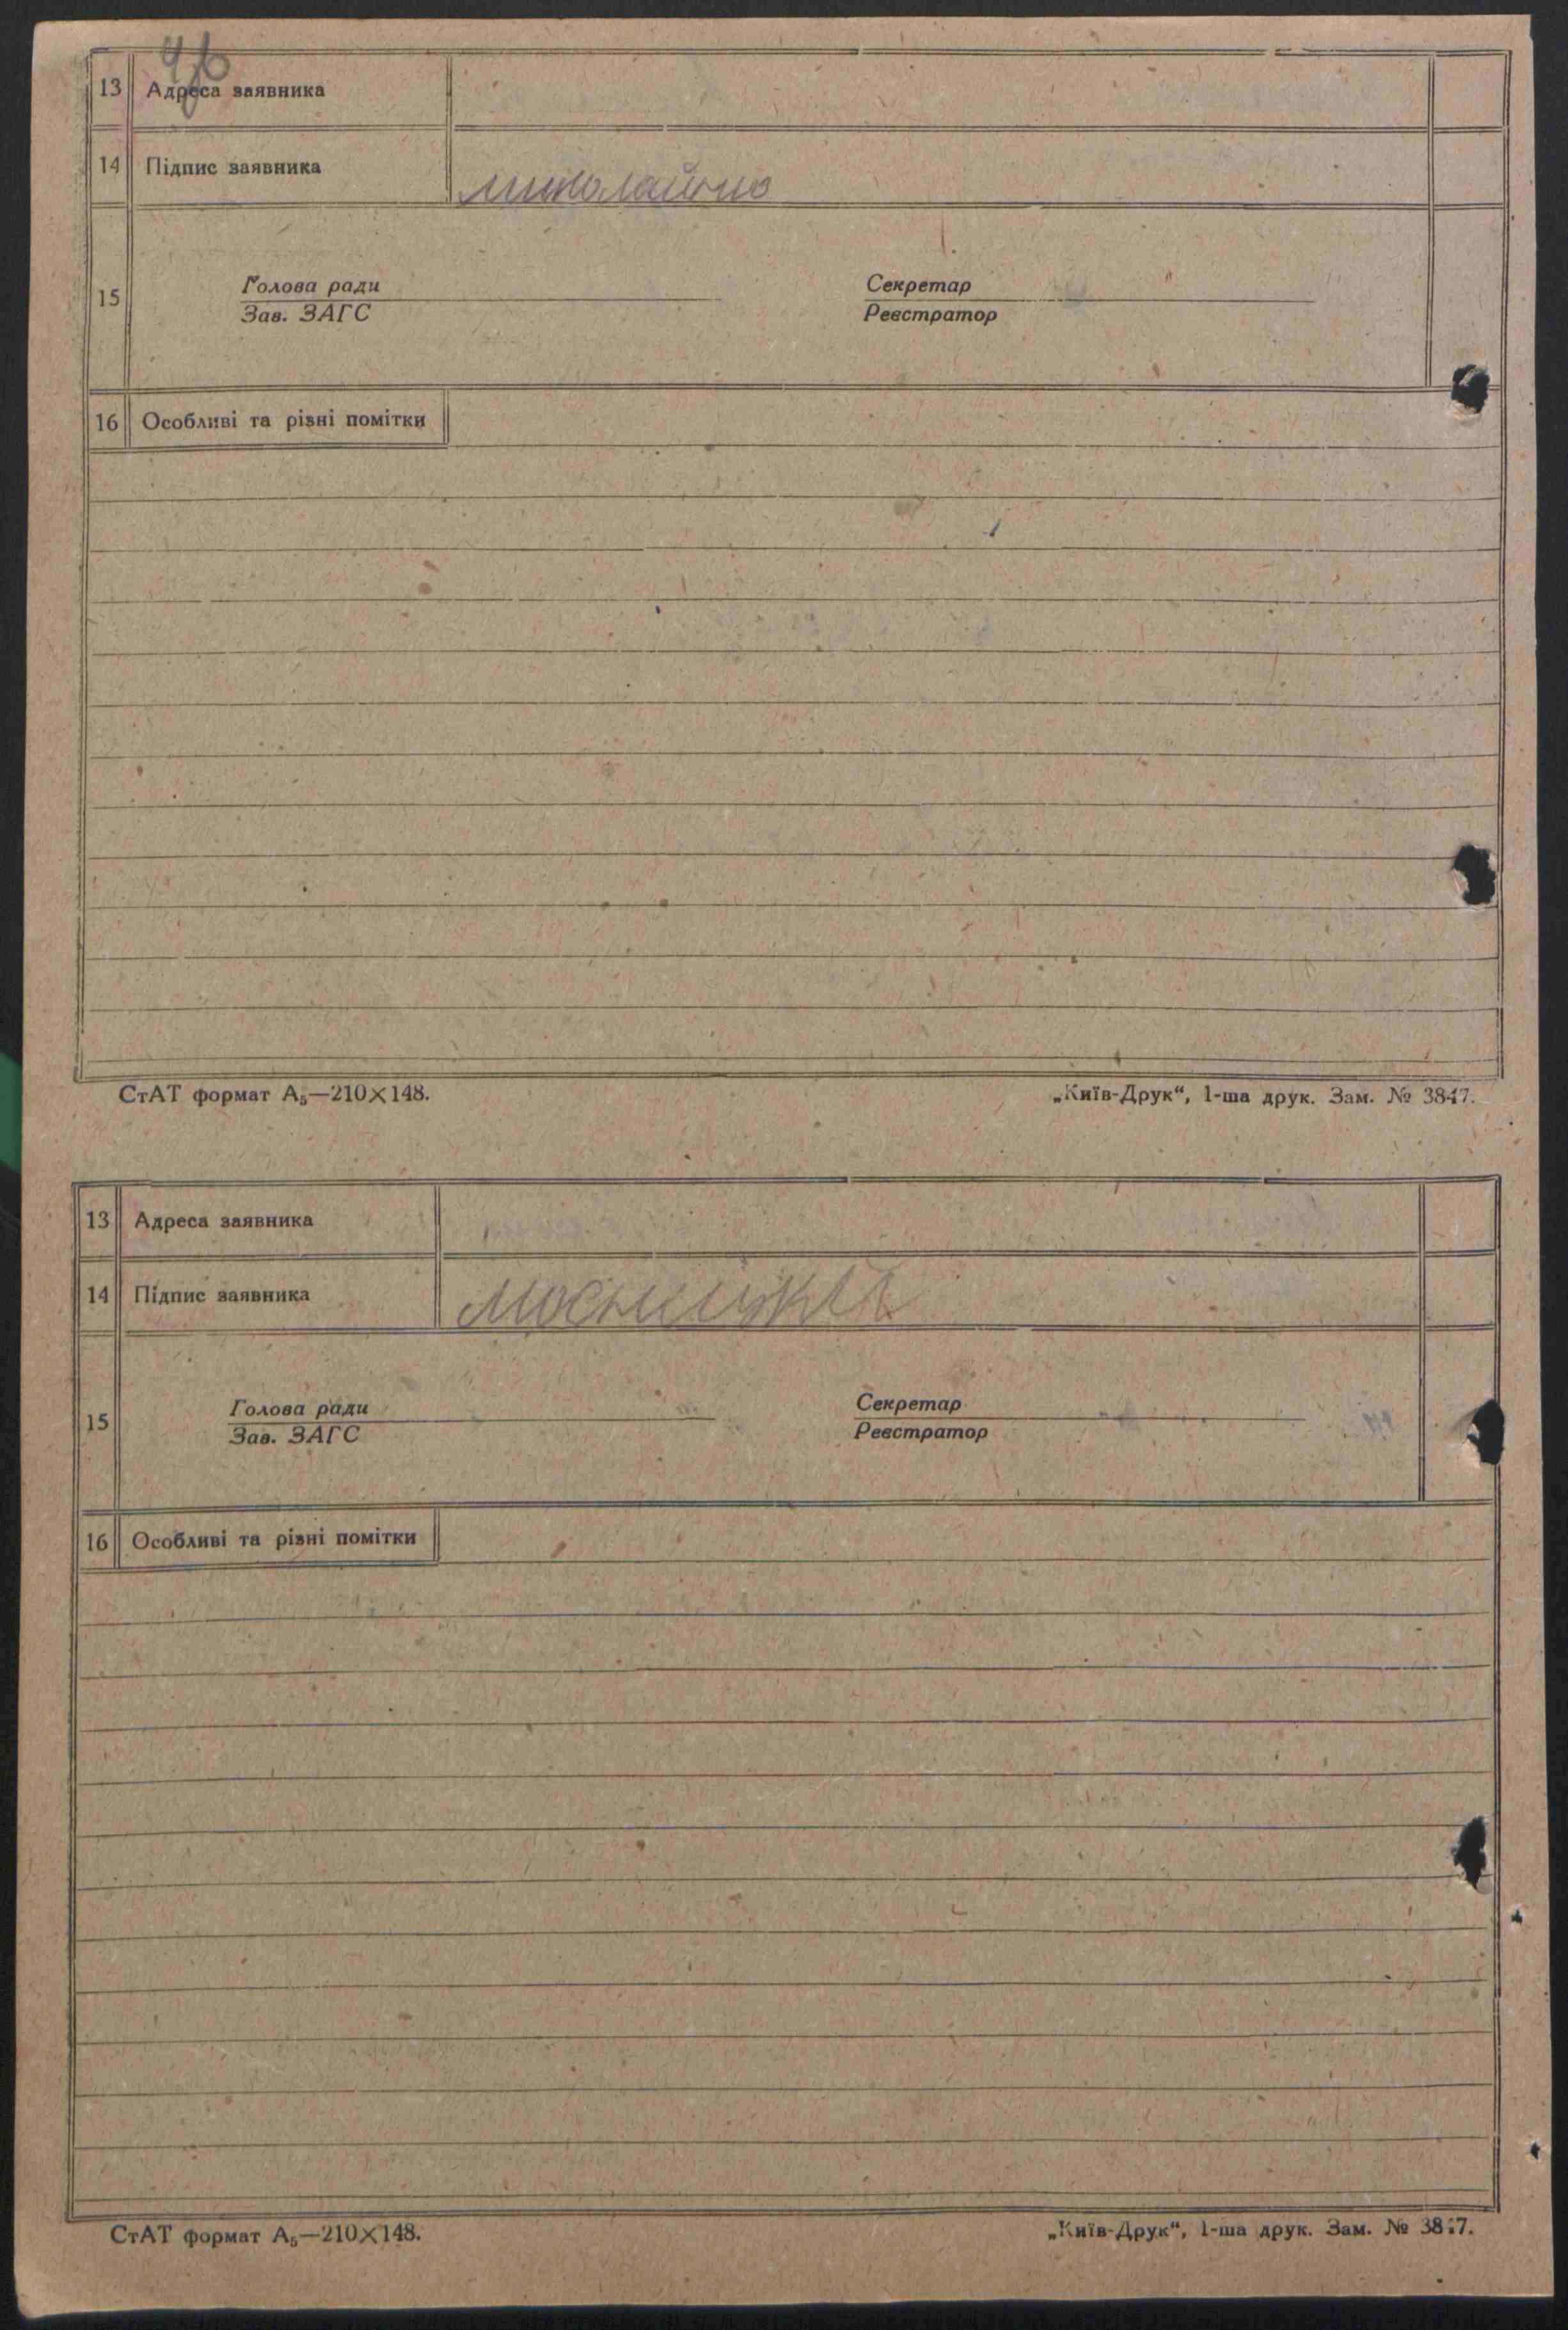 13 Адреса заявника
14 Підпис заявника Миколайчио
15 Голова ради Секретар
Зав. ЗАГС Реєстратор
16 Особливі та різні помітки
СтАТ формат А₅—210×148. „Київ-Друк“, 1-ша друк. Зам. № 3847.
13 Адреса заявника
14 Підпис заявника
15 Голова ради Секретар
Зав. ЗАГС Реєстратор
16 Особливі та різні помітки
СтАТ формат А₅—210×148. „Київ-Друк“, 1-ша друк. Зам. № 3847.